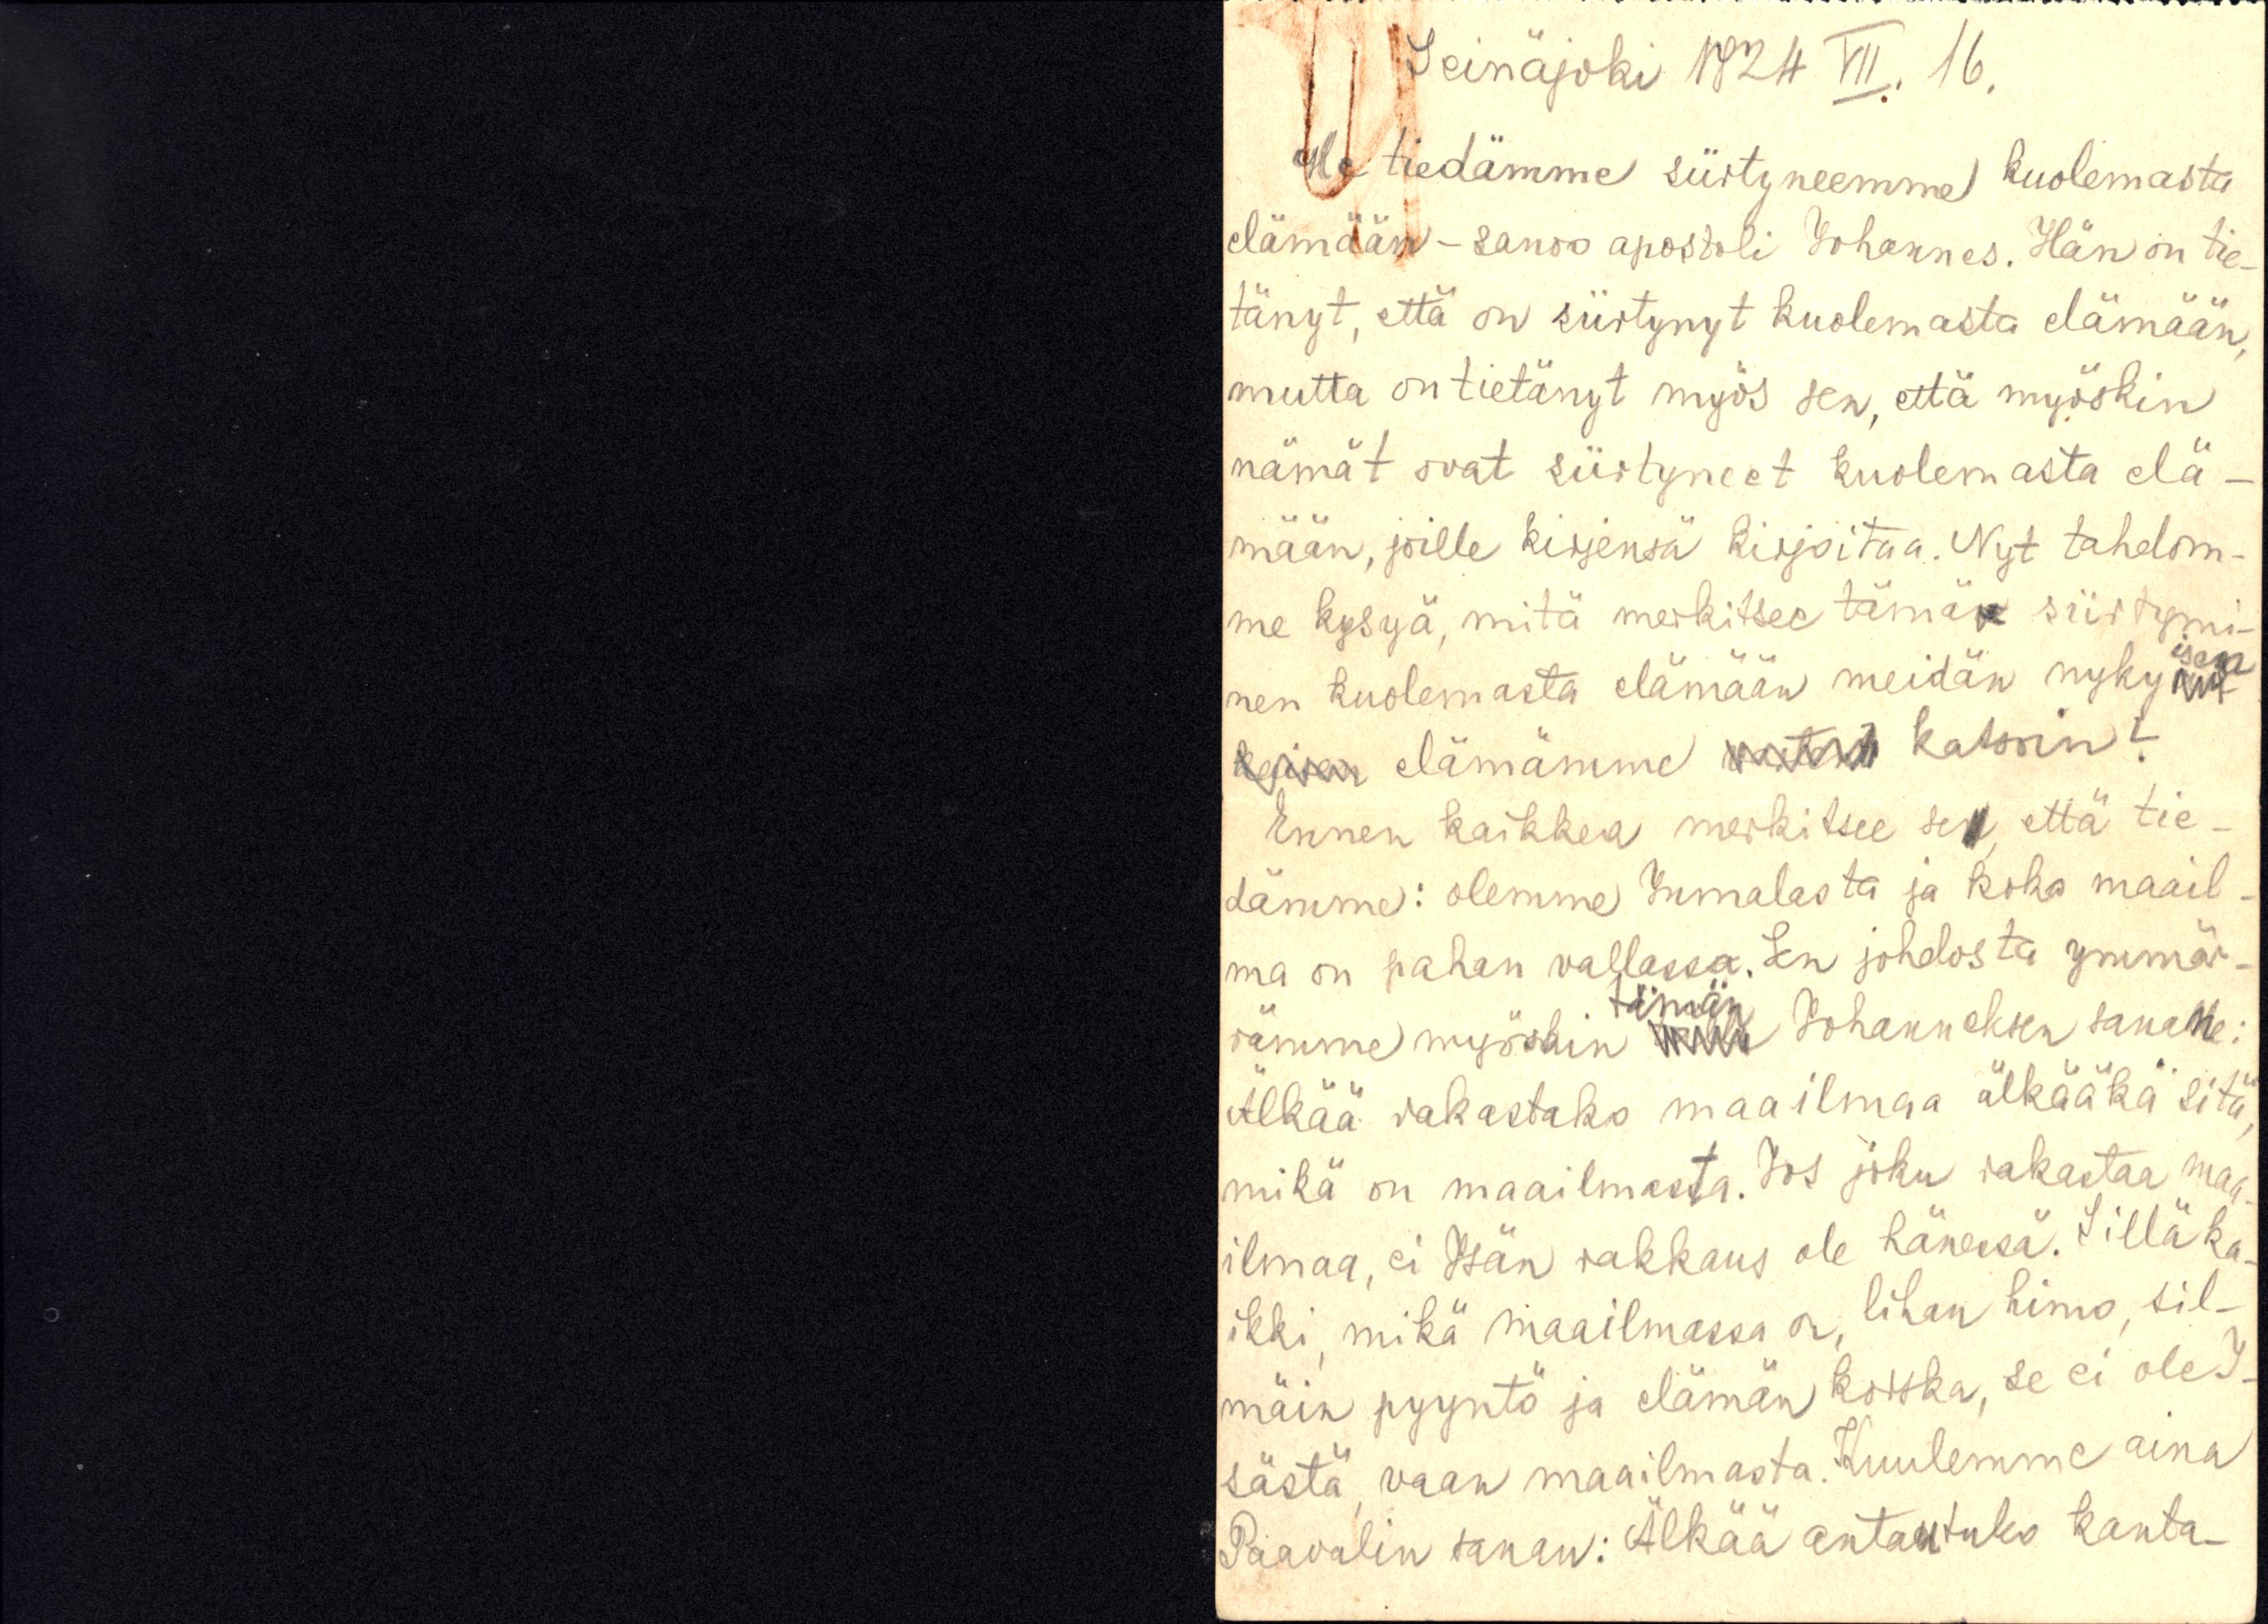 Seinäjoki 1924 VII. 16.
Me tiedämme siirtyneemme kuolemasta
elämään - sanoo apostoli Johannes. Hän on tie-
tänyt, että on siirtynyt kuolemasta elämään,
mutta on tietänyt myös sen, että myöskin
nämät ovat siirtyneet kuolemasta elä-
mään, joille kirjensä kirjoitaa. Nyt tahdom-
me kysyä, mitä merkitsee tämä siirtymi-
nen kuolemasta elämään meidän nykyisen
elämämme katsoin?
Ennen kaikkea merkitsee se, että tie-
dämme: olemme Jumalasta ja koko maail-
ma on pahan vallassa. Sen johdosta ymmär-
rämme myöskin tämän Johanneksen sanan:
Älkää rakastako maailmaa älkääkä sitä,
mikä on maailmasta. Jos joku rakastaa maa-
ilmaa, ei Isän rakkaus ole hänessä. Sillä ka-
ikki, mikä maailmassa on, lihan himo, sil-
mäin pyyntö ja elämän korska, se ei ole I-
sästä, vaan maailmasta. Kuulemme aina
Paavalin sanan: Älkää antautuko kanta-